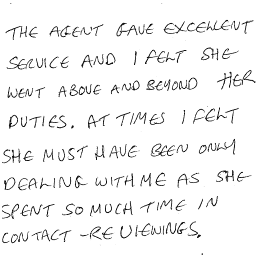 THE AGENT GAVE EXCELLENT
SERVICE AND I FELT SHE
WENT ABOVE AND BEYOND HER
DUTIES. AT TIMES I FELT
SHE MUST HAVE BEEN ONLY
DEALING WITH ME AS SHE
SPENT SO MUCH TIME IN
CONTACT -RE VIEWINGS.